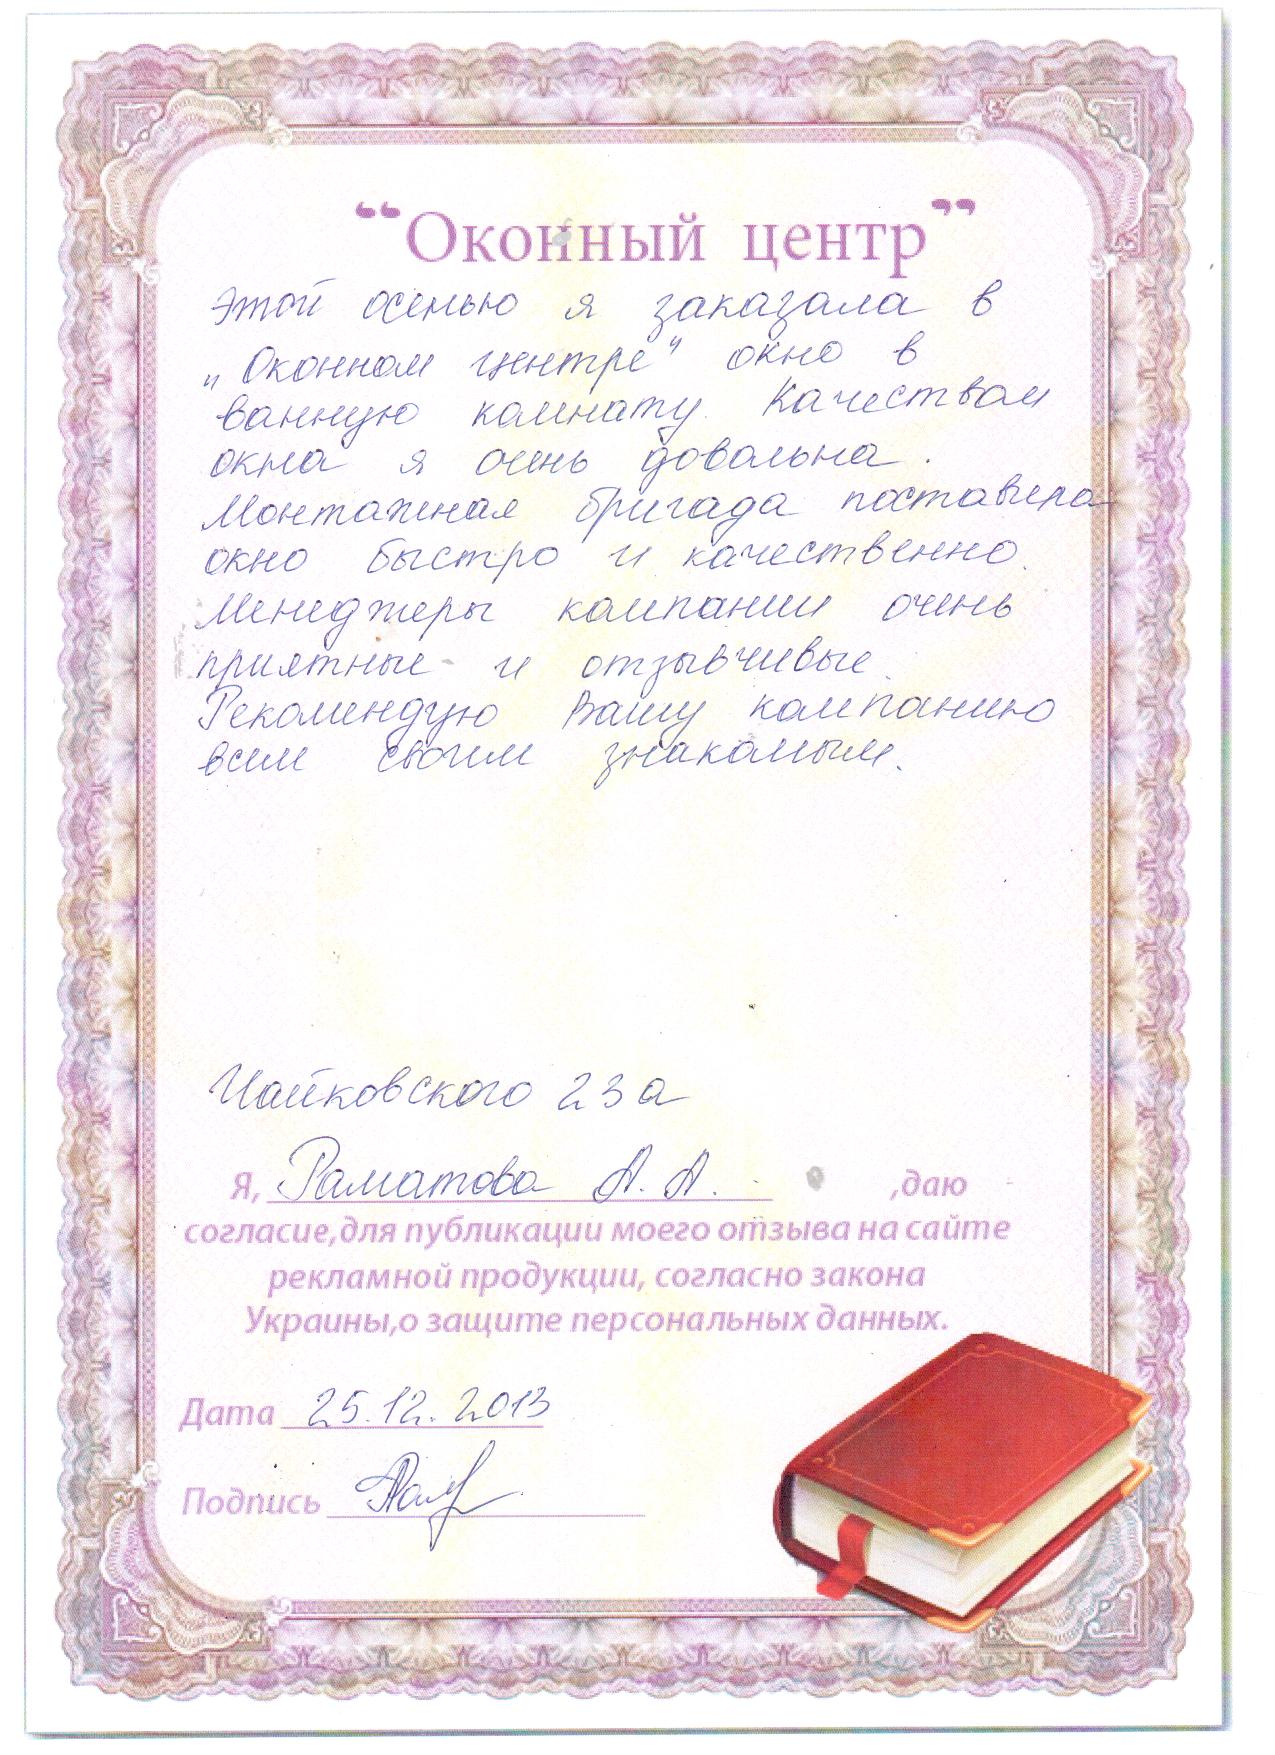 “Оконный центр”
Этой осенью я заказала в
„Оконном центре" окно в
ванную комнату. Качеством
окна я очень довольна.
Монтажная бригада поставила
окно быстро и качественно.
Менеджеры компании очень
приятные и отзывчивые.
Рекомендую Вашу компанию
всем своим знакомым.
Чайковского 23а
Я, Раматова А. А. ,даю
согласие,для публикации моего отзыва на сайте
рекламной продукции, согласно закона
Украины,о защите персональных данных.
Дата 25.12.2013
Подпись